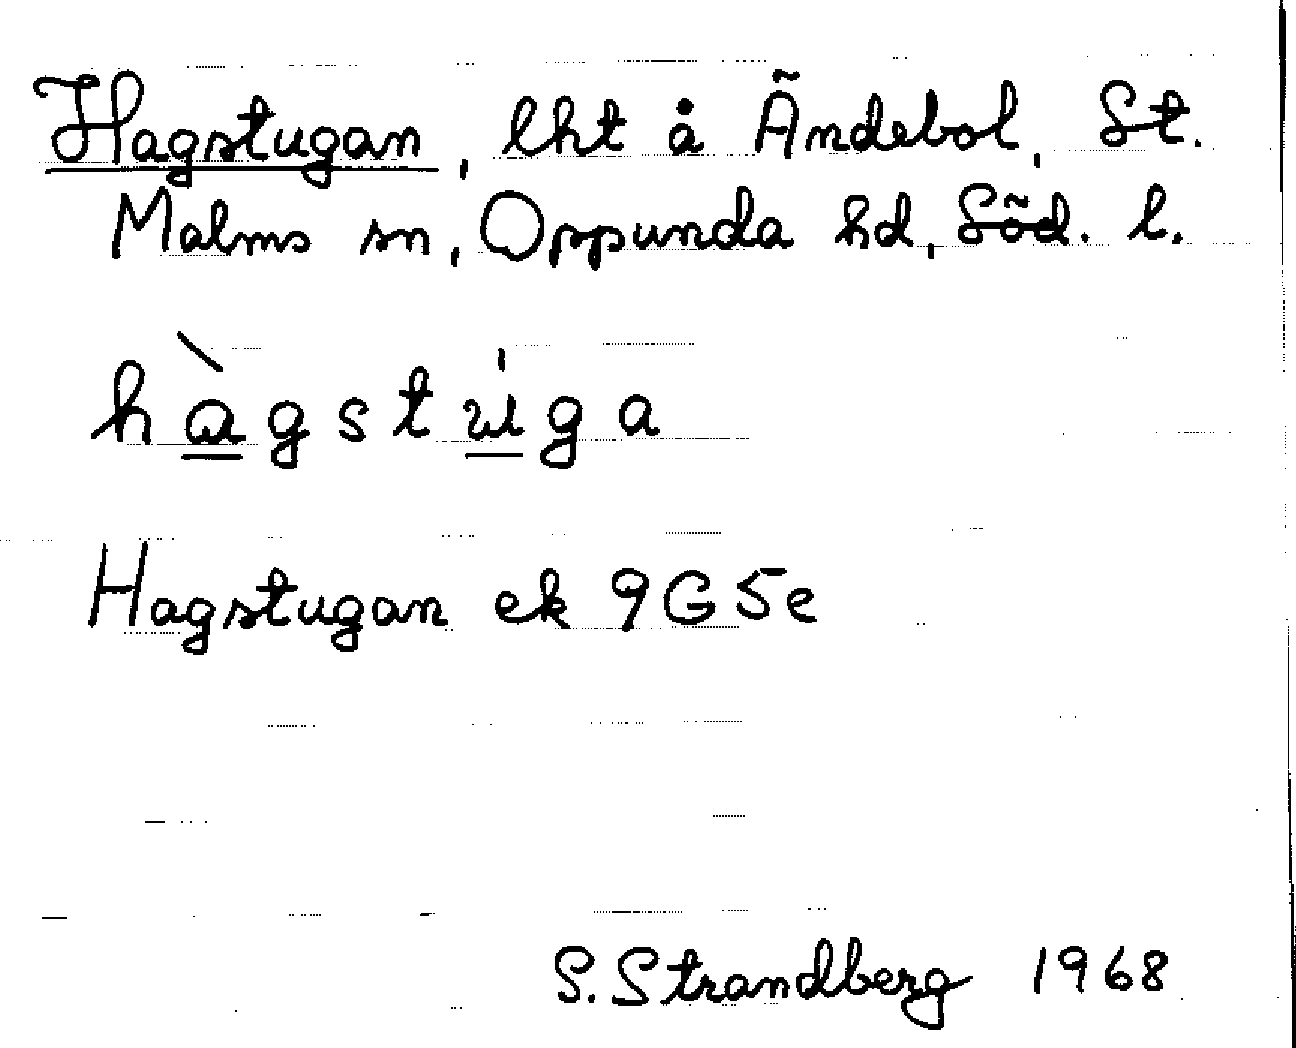 Hagstugan, lht å Ändebol, St.
Malms sn, Oppunda hd, Söd. l.
hàgstu̍ga
Hagstugan ek 9G5e
S. Strandberg 1968